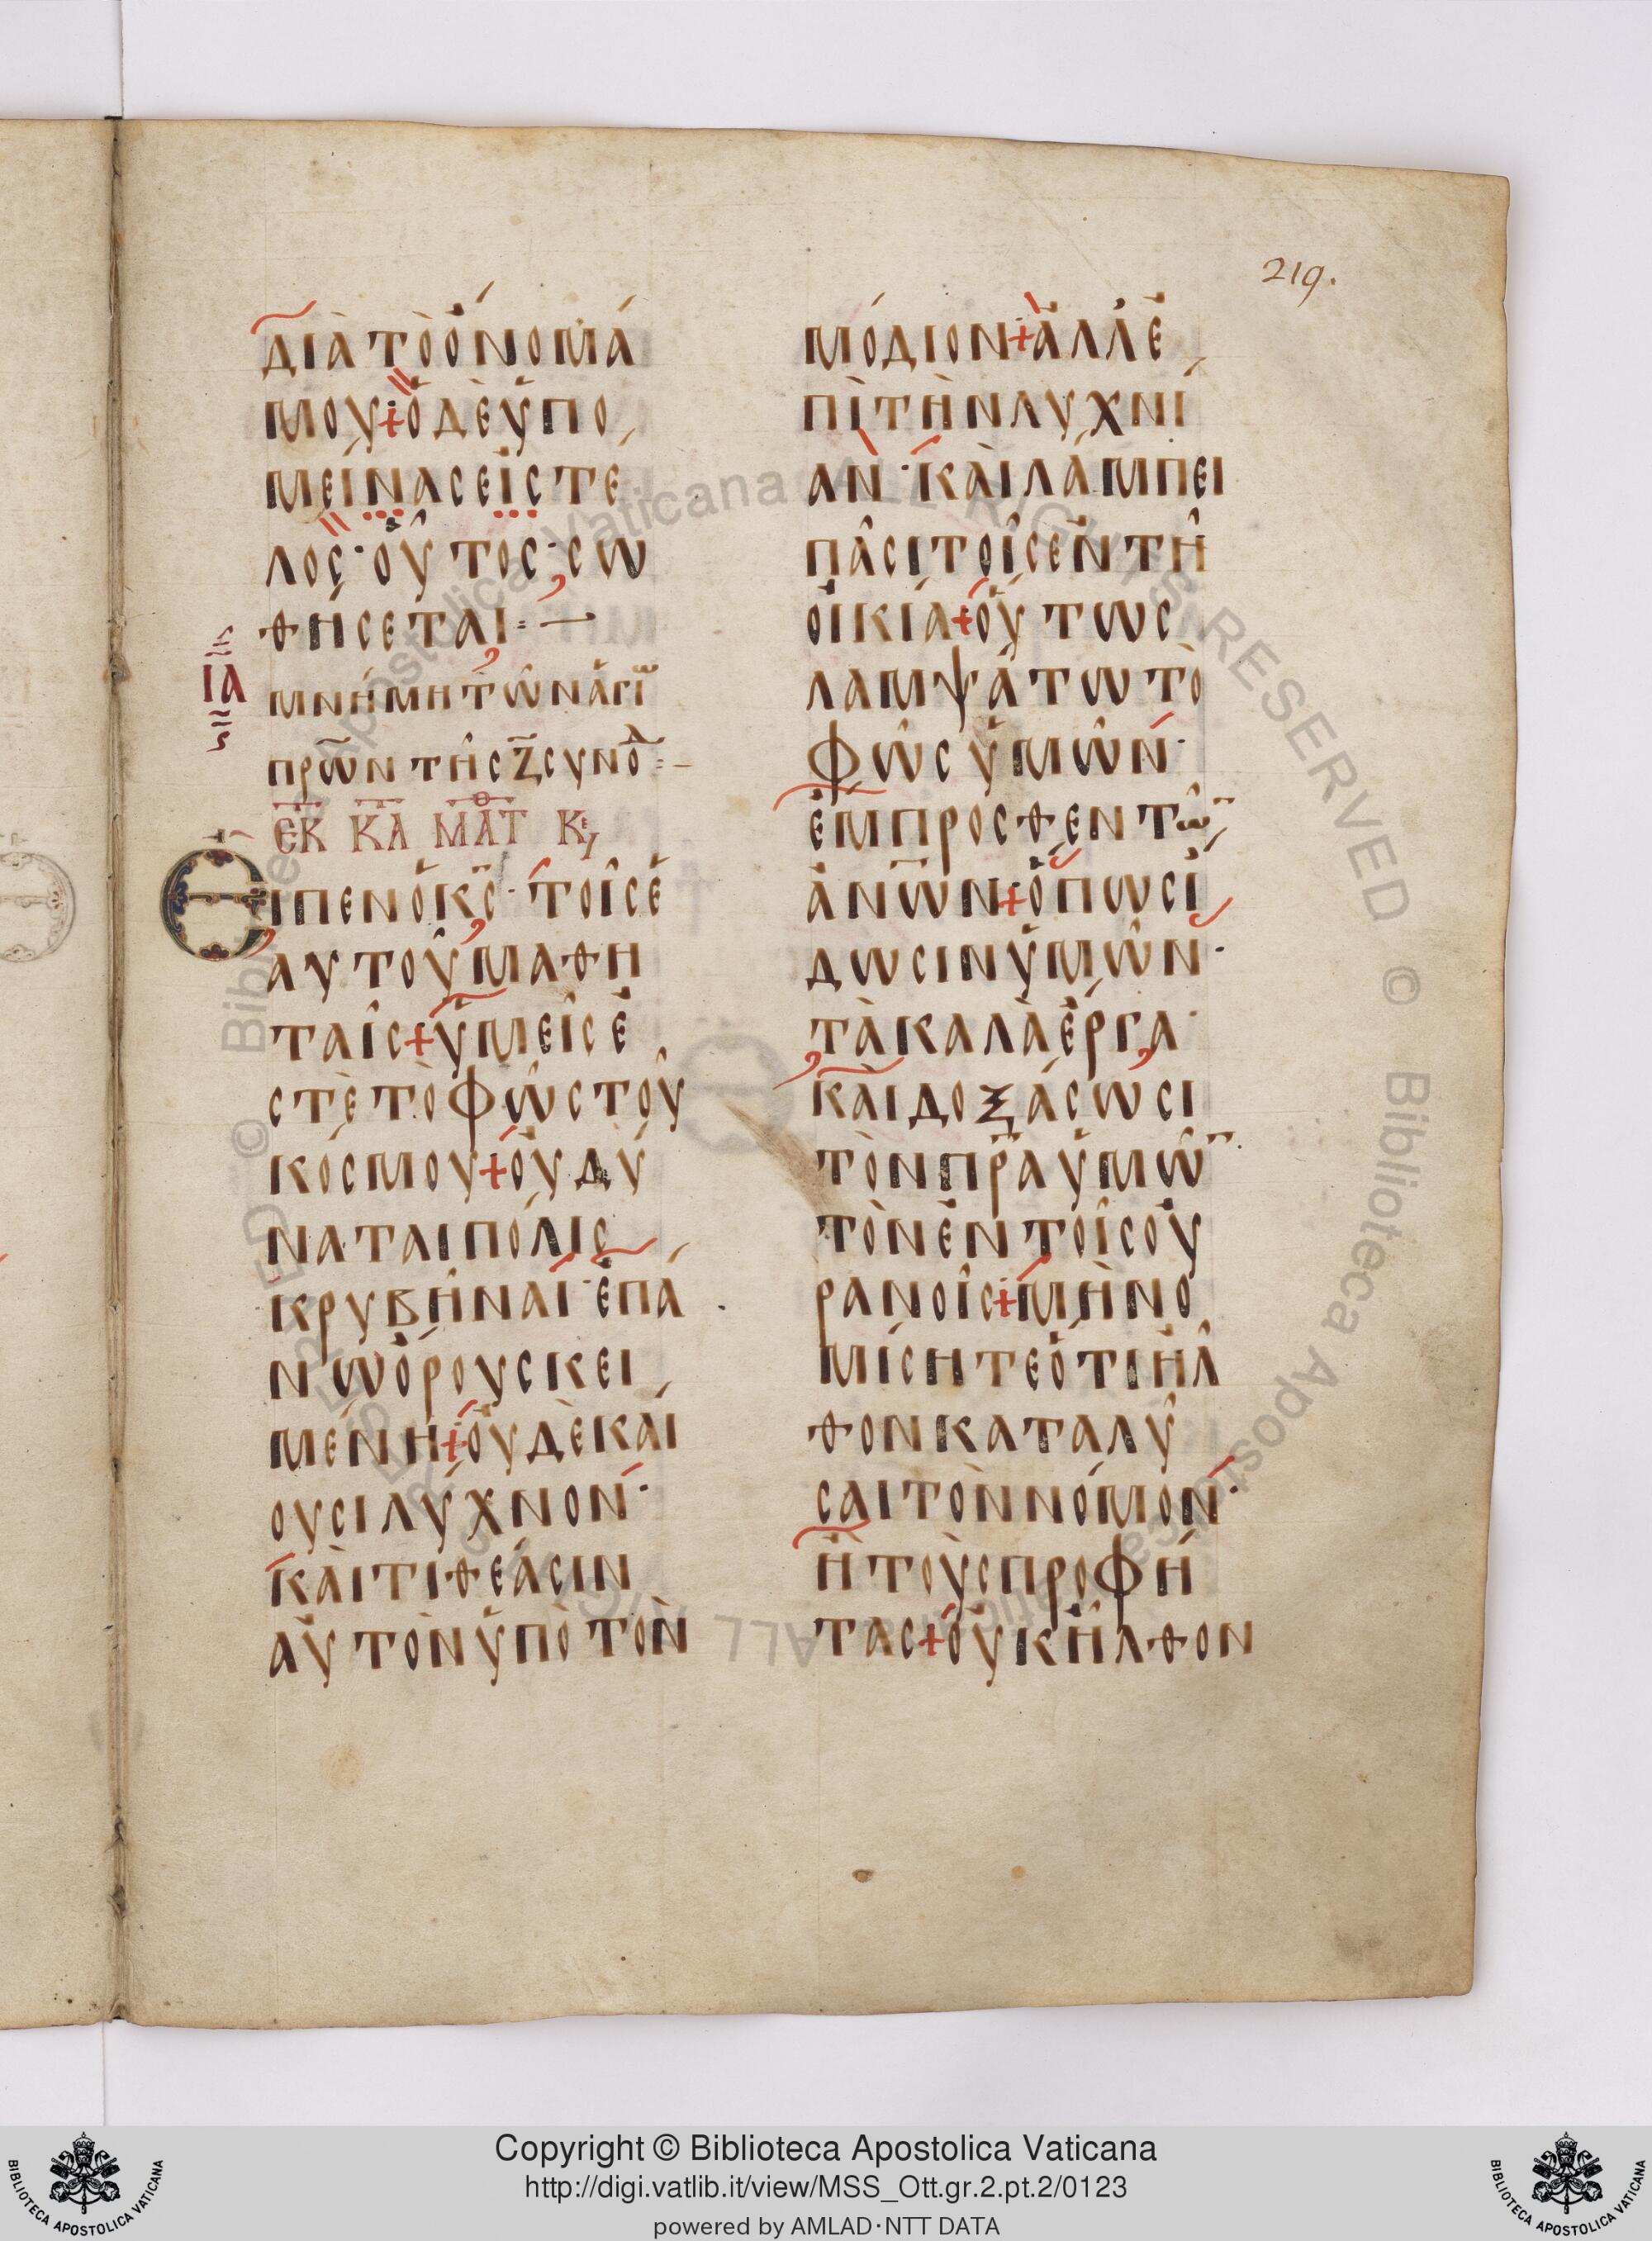 219.
διὰ τὸ ὄνομά
μου + ὁ δὲ ὑπο
μείνας εἰς τέ
λος · οὗτος · σω
θήσεται :—
ΙΑ
μνήμη τῶν ἁγί
πρ̅ων τῆς ζ̅ συνοδ :—
ἐκ κα ματθ κε,
Εἶπεν ὁ κ̅ς̅ · τοῖς ἑ
αυτοῦ μαθη
ταῖς + ὑμεῖς ἐ
στὲ τὸ φῶς τοῦ
κόσμου + οὐ δύ
ναται πόλις
κρυβῆναι · ἐπά
νω ὄρους κει
μένη + οὐδὲ καί
ουσι λύχνον ·
καὶ τιθέασιν
αὐτὸν ὑπὸ τὸν
μόδιον + ἀλλ' ἐ
πὶ τὴν λυχνί
αν · καὶ λάμπει
πᾶσι τοῖς ἐν τῇ
οἰκία + οὕτως
λαμψάτω τὸ
φῶς ὑμῶν ·
ἔμπροσθεν τῶ̅
ἀν̅ω̅ν + ὅπως ἴ
δωσιν ὑμῶν ·
τὰ καλὰ ἔργα ·
καὶ δοξάσωσι
τὸν πρ̅α ὑμῶ̅
τὸν ἐν τοῖς οὐ
ρανοῖς + μὴ νο
μίσητε ὅτι ἦλ
θον καταλῦ
σαι τὸν νόμον ·
ἢ τοὺς προφή
τας + οὐκ ἦλθον
Copyright © Biblioteca Apostolica Vaticana
http://digi.vatlib.it/view/MSS_Ott.gr.2.pt.2/0123
powered by AMLAD·NTT DATA
BIBLIOTECA APOSTOLICA VATICANA
BIBLIOTECA APOSTOLICA VATICANA